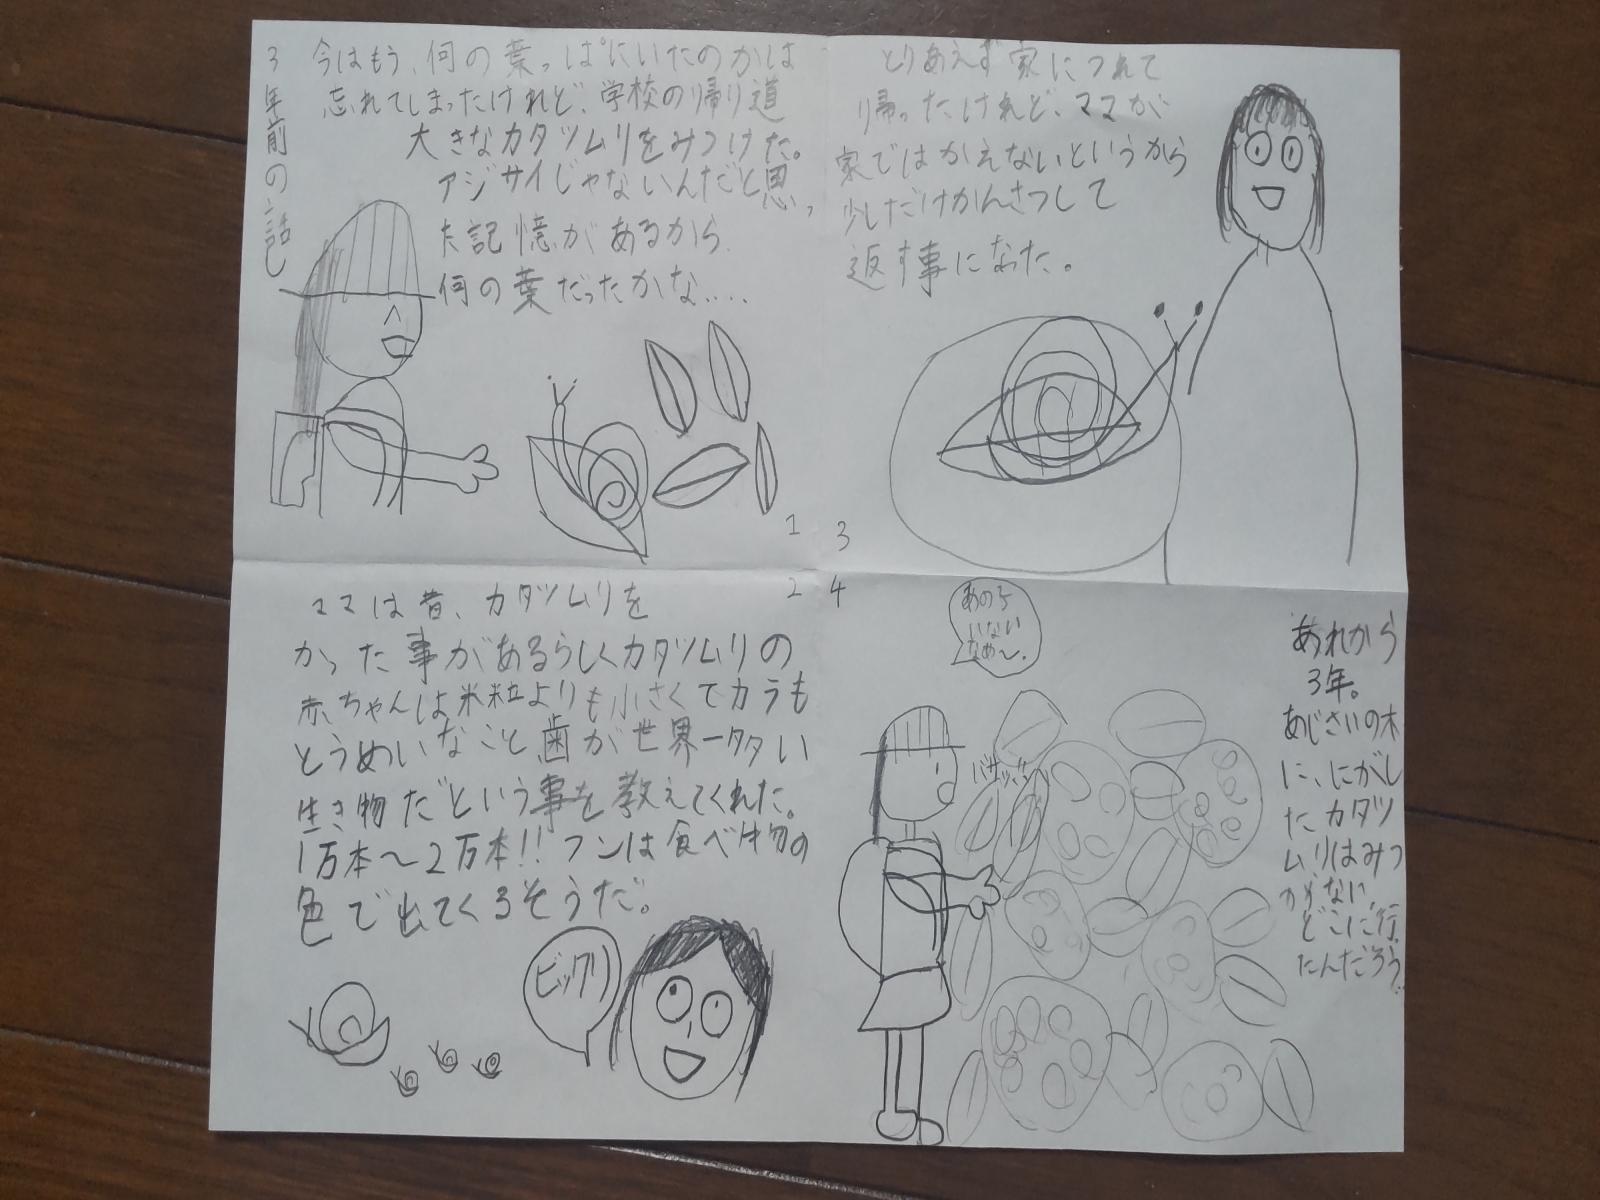 3年前の話し
今はもう、何の葉っぱにいたのかは
忘れてしまったけれど、学校の帰り道
大きなカタツムリをみつけた。
アジサイじゃないんだと思っ
た記憶があるから
何の葉だったかな....
1
ママは昔、カタツムリを
かった事があるらしくカタツムリの
赤ちゃんは米粒よりも小さくてカラも
とうめいなこと歯が世界一多い
生き物だという事を教えてくれた。
1万本〜2万本!!フンは食べ物の
色で出てくるそうだ。
ビックリ
2
とりあえず家につれて
帰ったけれど、ママが
家ではかえないというから
少しだけかんさつして
返す事になった。
3
4
あの子
いない
なぁ〜。
あれから
3年。
あじさいの木
に、にがし
たカタツ
ムリはみつ
からない。
どこに行っ
たんだろう..